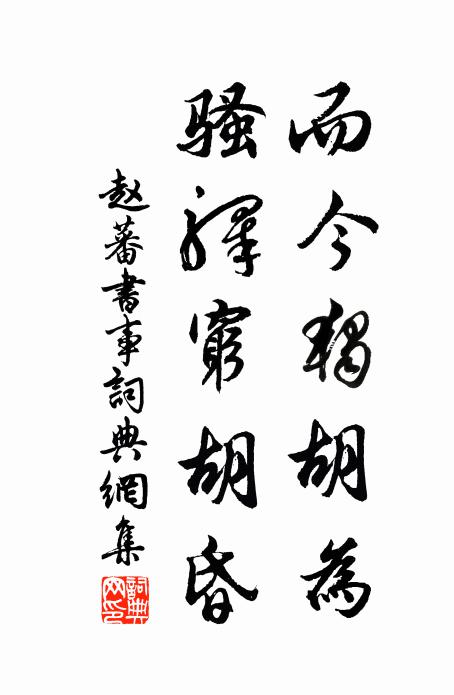 而今獨胡為
騷驛窮胡昏
赵蕃書事詞典網集
詞典网印